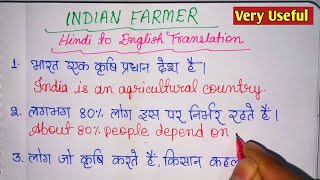 INDIAN FARMER
Very Useful
Hindi to English Translation
1. भारत एक कृषि प्रधान देश है।
India is an agricultural country.
2. लगभग 80% लोग इस पर निर्भर रहते हैं।
About 80% people depend on
3. लोग जो कृषि करते हैं, किसान कहल